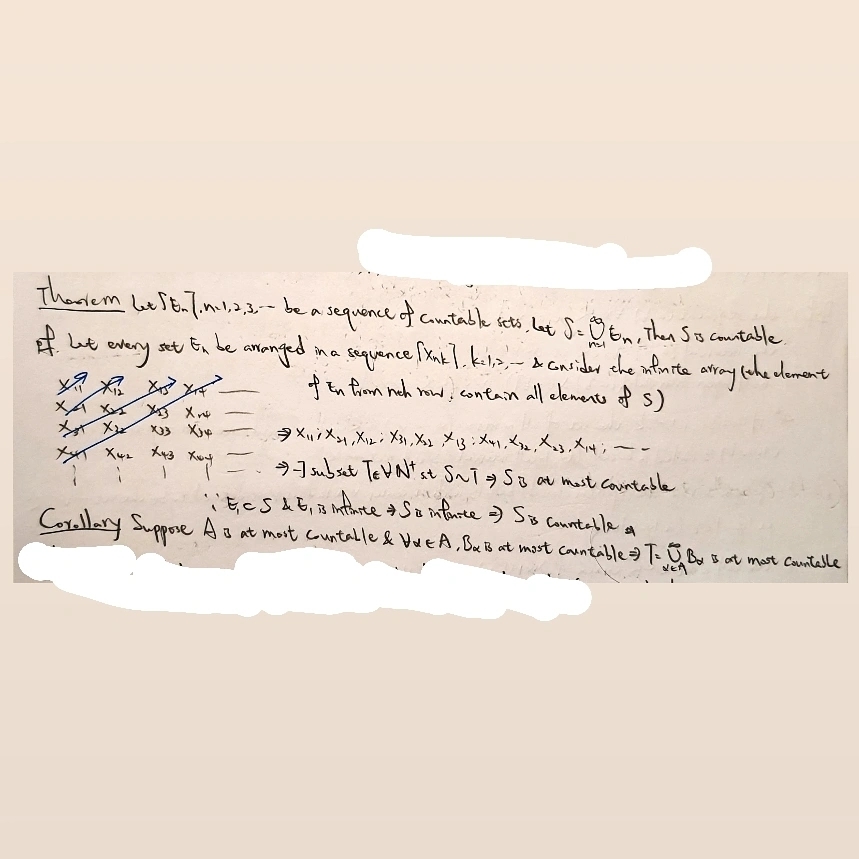 Theorem Let {En}, n=1,2,3,--- be a sequence of countable sets, Let S = ∞∪n=1 En, Then S is countable.
pf. Let every set En be arranged in a sequence {Xnk}, k=1,2,--- & consider the infinite array (the element
of En from nth row, contain all elements of S)
X11 X12 X13 X14 —
X21 X22 X23 X24 —
X31 X32 X33 X34 —
X41 X42 X43 X44 —
⇒ X11; X21, X12; X31, X22, X13; X41, X32, X23, X14; ---
⇒ ∃ subset T N+ st S~T ⇒ S is at most countable
∵ E1 ⊂ S & E1 is infinite ⇒ S is infinite ⇒ S is countable
Corollary Suppose A is at most countable & ∀α∈A, Bα is at most countable ⇒ T = ∪α∈A Bα is at most countable